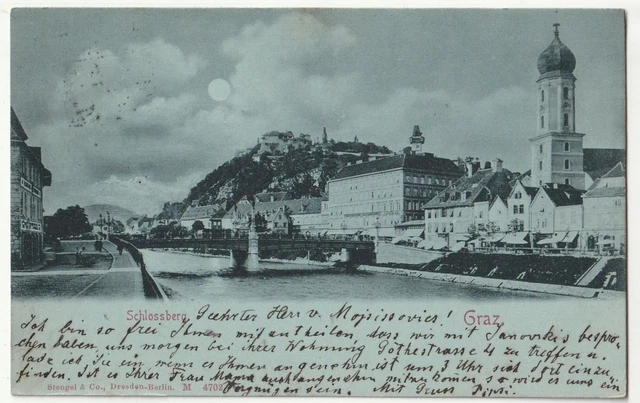 Schlossberg.
Geehrter Herr v. Mojsissovics!
Graz
Ich bin so frei Ihnen mitzutheilen dass wir mit Janovskis bespro-
chen haben, uns morgen bei ihrer Wohnung Göthestrasse 4 zu treffen u.
lade ich Sie ein wenn es Ihnen angenehm ist um 3 Uhr sich dort einzu-
finden. Ist es Ihrer Frau Mama auch angenehm mitzukommen so wird es uns ein
Vergnügen sein. Mit Gruss
Stengel & Co., Dresden-Berlin. M 4702